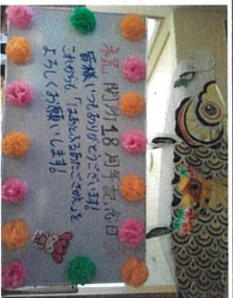 祝 開所18周年記念日
皆様、いつもありがとうございます!
これからも、「はあとふるあたごさゆみ」を
よろしくお願いします!